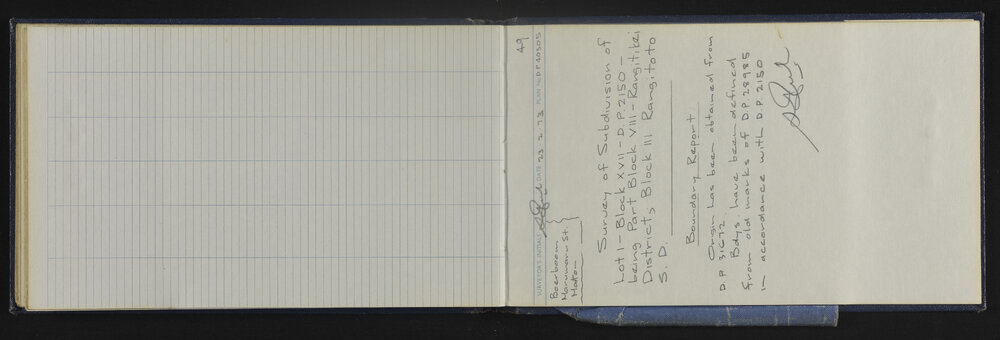 49
SURVEYOR'S INITIALS DATE 23.2.73 PLAN No. D P 40305
Boerboom
St.
Survey of Subdivision of
Lot 1 - Block XVII - D.P. 2150 -
being Part Block VIII - Rangitikei
District, Block III Rangitoto
S.D.
Boundary Report
Origin has been obtained from
D.P. 31672.
Bdys. have been defined
from old marks of D.P. 28985
in accordance with D.P. 2150